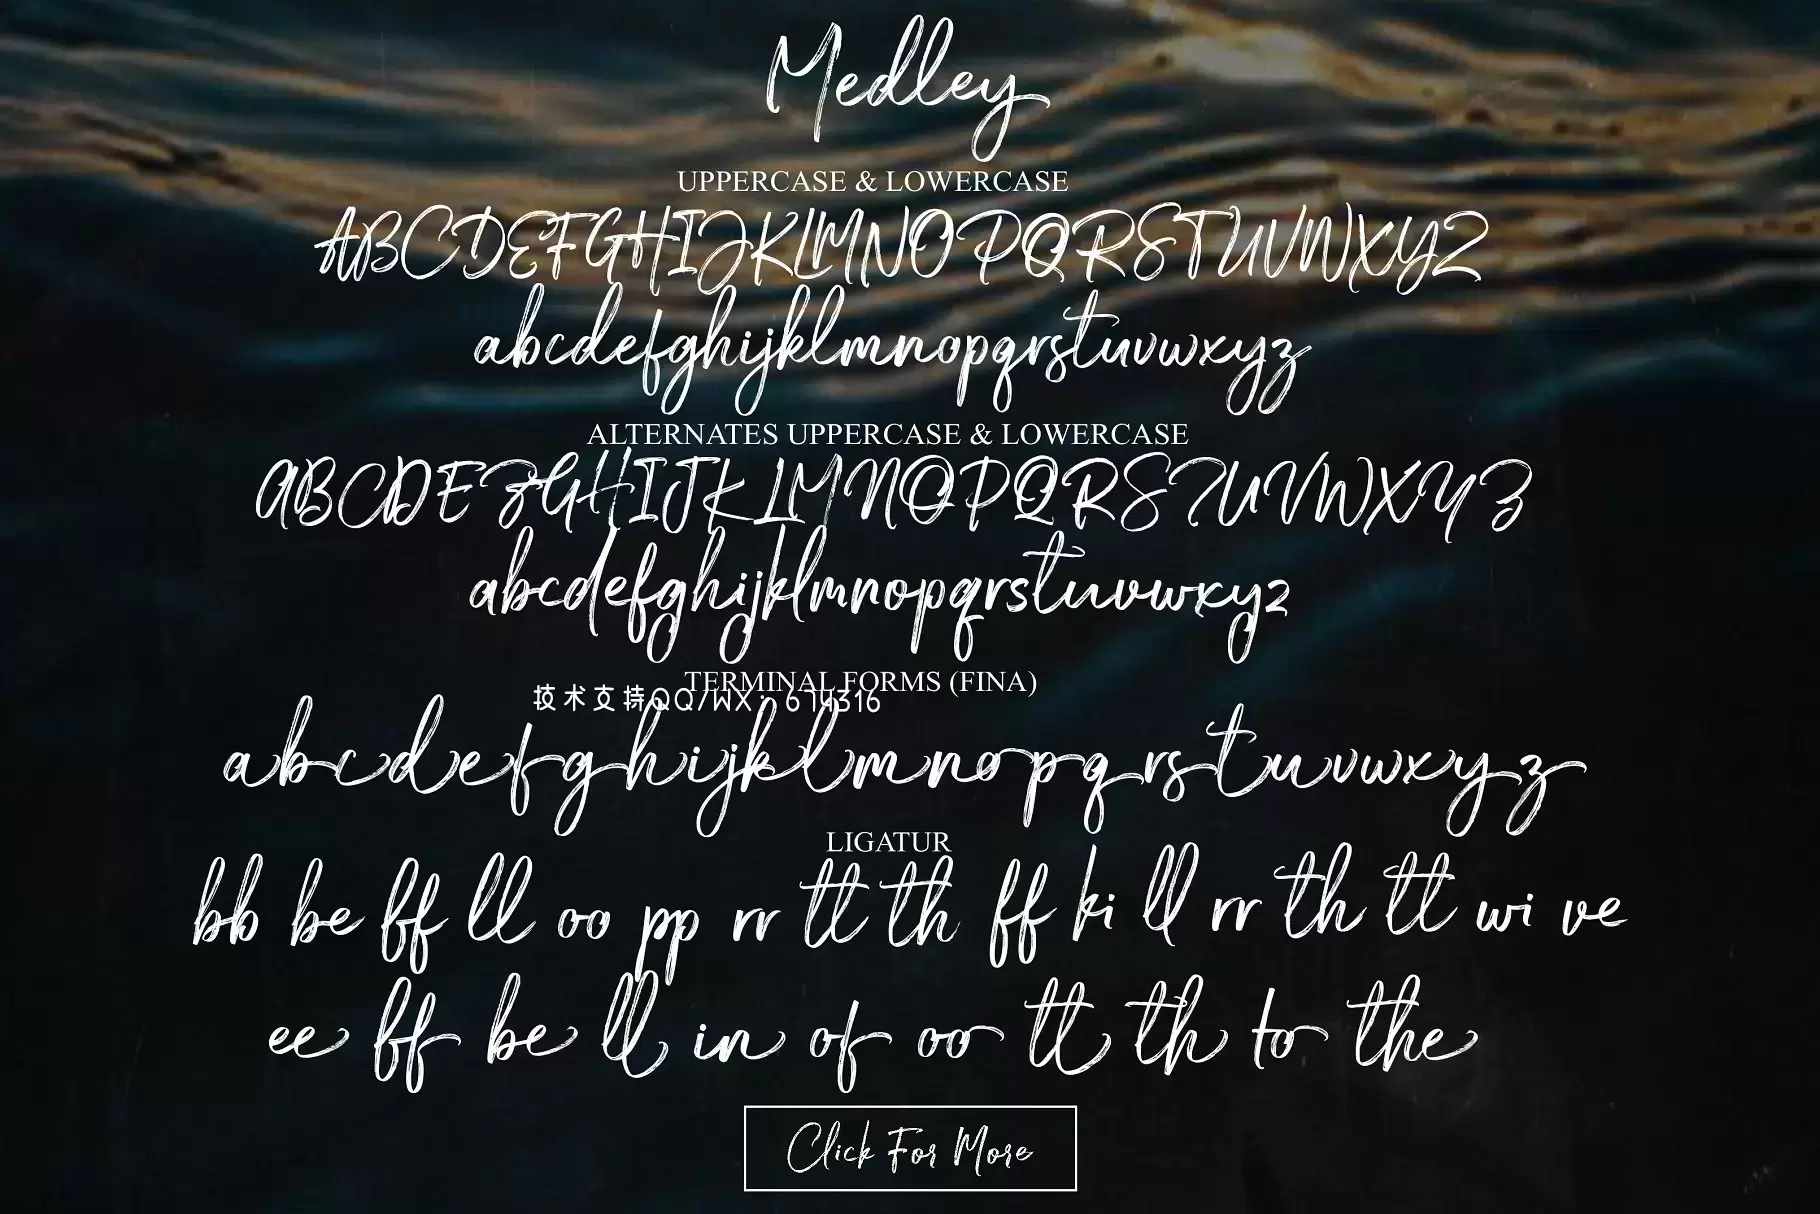 Medley
UPPERCASE & LOWERCASE
ABCDEFGHIJKLMNOPQRSTUVWXYZ
abcdefghijklmnopqrstuvwxyz
ALTERNATES UPPERCASE & LOWERCASE
ABCDEFGHIJKLMNOPQRSTUVWXYZ
abcdefghijklmnopqrstuvwxyz
TERMINAL FORMS (FINA)
技术支持QQ/WX：674316
abcdefghijklmnopqrstuvwxyz
LIGATUR
bb be ff ll oo pp rr tt th ff ki ll rr th tt wi ve
ee ff be ll in of oo tt th to the
Click For More